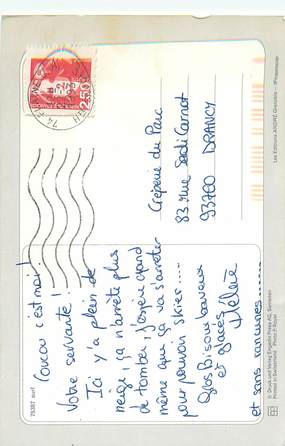 Coucou c'est moi !
Votre servante !
Ici y'a plein de
neige, ça n'arrête plus
de tomber, j'espère quand
même que ça va s'arrêter
pour pouvoir skier.....
Gros Bisous baveux
et glacés
Hélène
et sans rancunes......
2,50
Crêperie du Parc
83 rue Sadi Carnot
93700 DRANCY
Les Editions ANDRÉ Grenoble
75387 surf
© Druck und Verlag Engadin Press AG, Samedan
Printed in Switzerland Photo: F. Royer